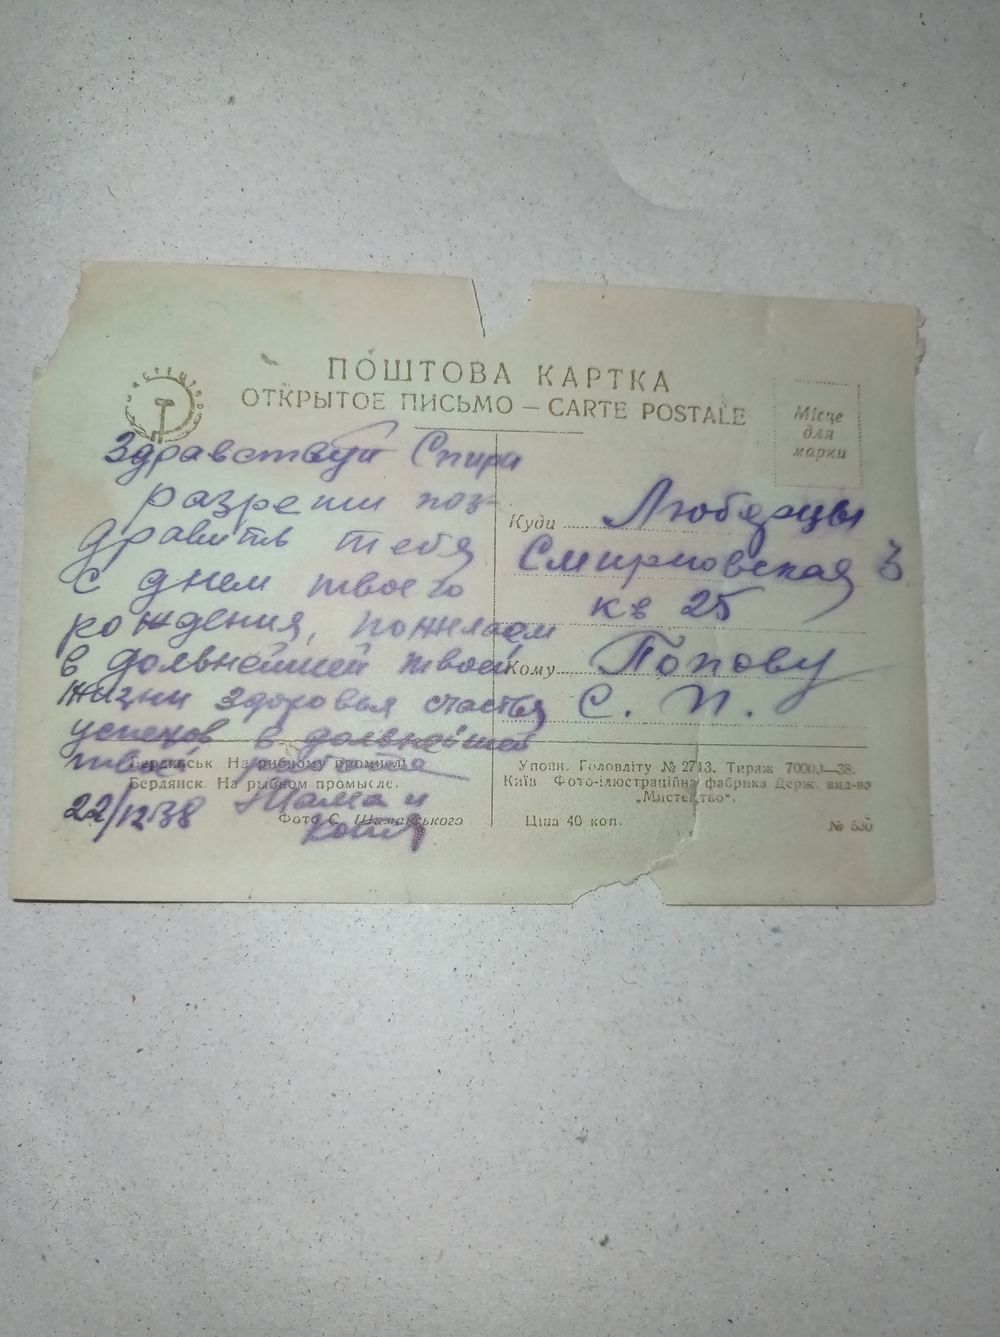 ПОШТОВА КАРТКА
ОТКРЫТОЕ ПИСЬМО — CARTE POSTALE
Місце
для
марки
Здравствуй Спира
разреши поз-
дравить тебя
с днем твоего
рождения, пожелаем
в дольнейшей твоей
жизни здоровья счастья
успехов в дольнейшей
твоей работе
22/12 38 Мама и
Коля
Куди Люберцы
Смирновская 3
кв 25
Кому Попову
С. П.
Бердянськ На рибному промислі.
Бердянск. На рыбном промысле.
Фото С. Шиманського
Уповн. Головліту № 2713. Тираж 7000.—38.
Київ Фото-ілюстраційна фабрика Держ. вид-ва
„Мистецтво“.
Ціна 40 коп.
№ 530